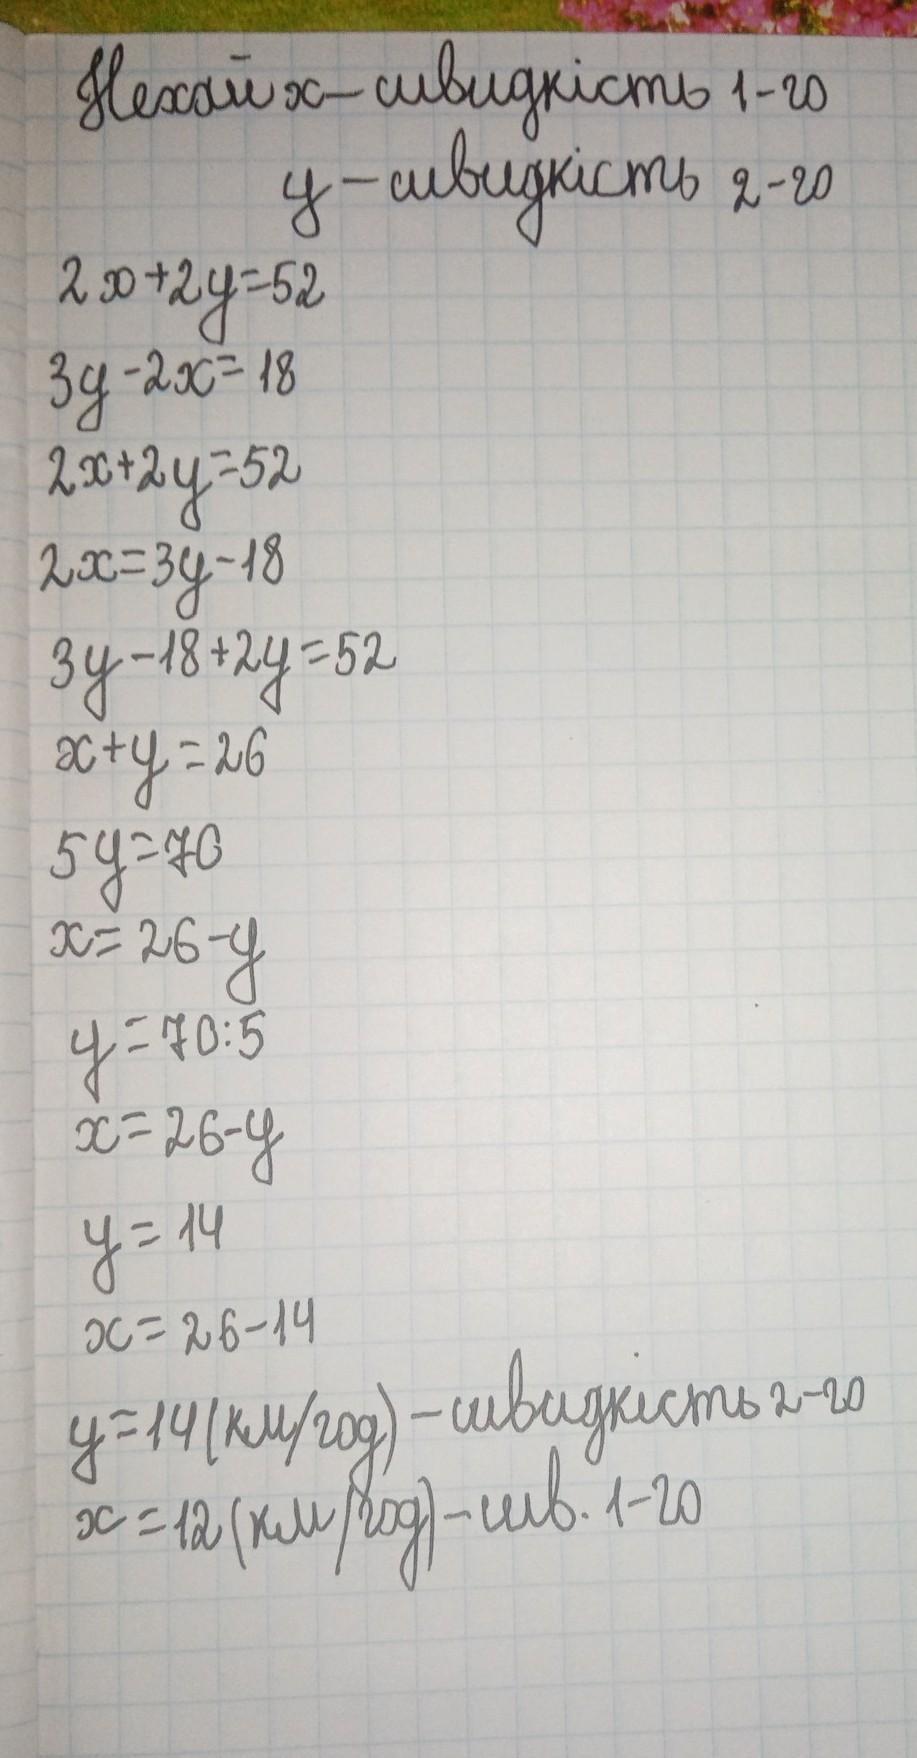 Нехай х – швидкість 1-го
у – швидкість 2-го
2х+2у=52
3у-2х=18
2х+2у=52
2х=3у-18
3у-18+2у=52
х+у=26
5у=70
х=26-у
у=70:5
х=26-у
у=14
х=26-14
у=14(км/год)-швидкість 2-го
х=12(км/год)-шв. 1-го